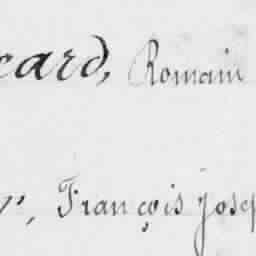 card, Romain
r, François Josep